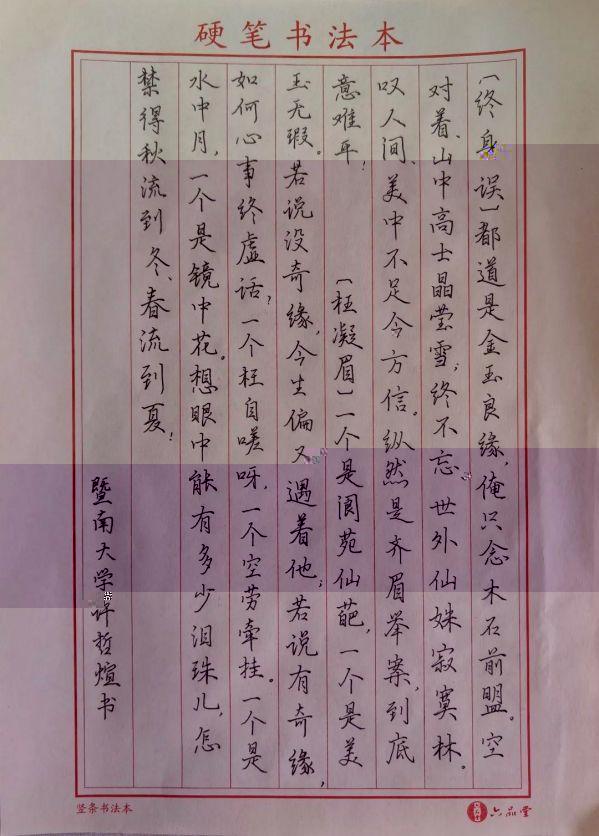 硬笔书法本
〔终身误〕都道是金玉良缘，俺只念木石前盟。空
对着、山中高士晶莹雪；终不忘、世外仙姝寂寞林。
叹人间、美中不足今方信。纵然是齐眉举案，到底
意难平！〔枉凝眉〕一个是阆苑仙葩，一个是美
玉无瑕。若说没奇缘，今生偏又遇着他；若说有奇缘，
如何心事终虚话？一个枉自嗟呀，一个空劳牵挂。一个是
水中月，一个是镜中花。想眼中能有多少泪珠儿，怎
禁得秋流到冬、春流到夏！
暨南大学许哲煊书
竖条书法本
六品堂